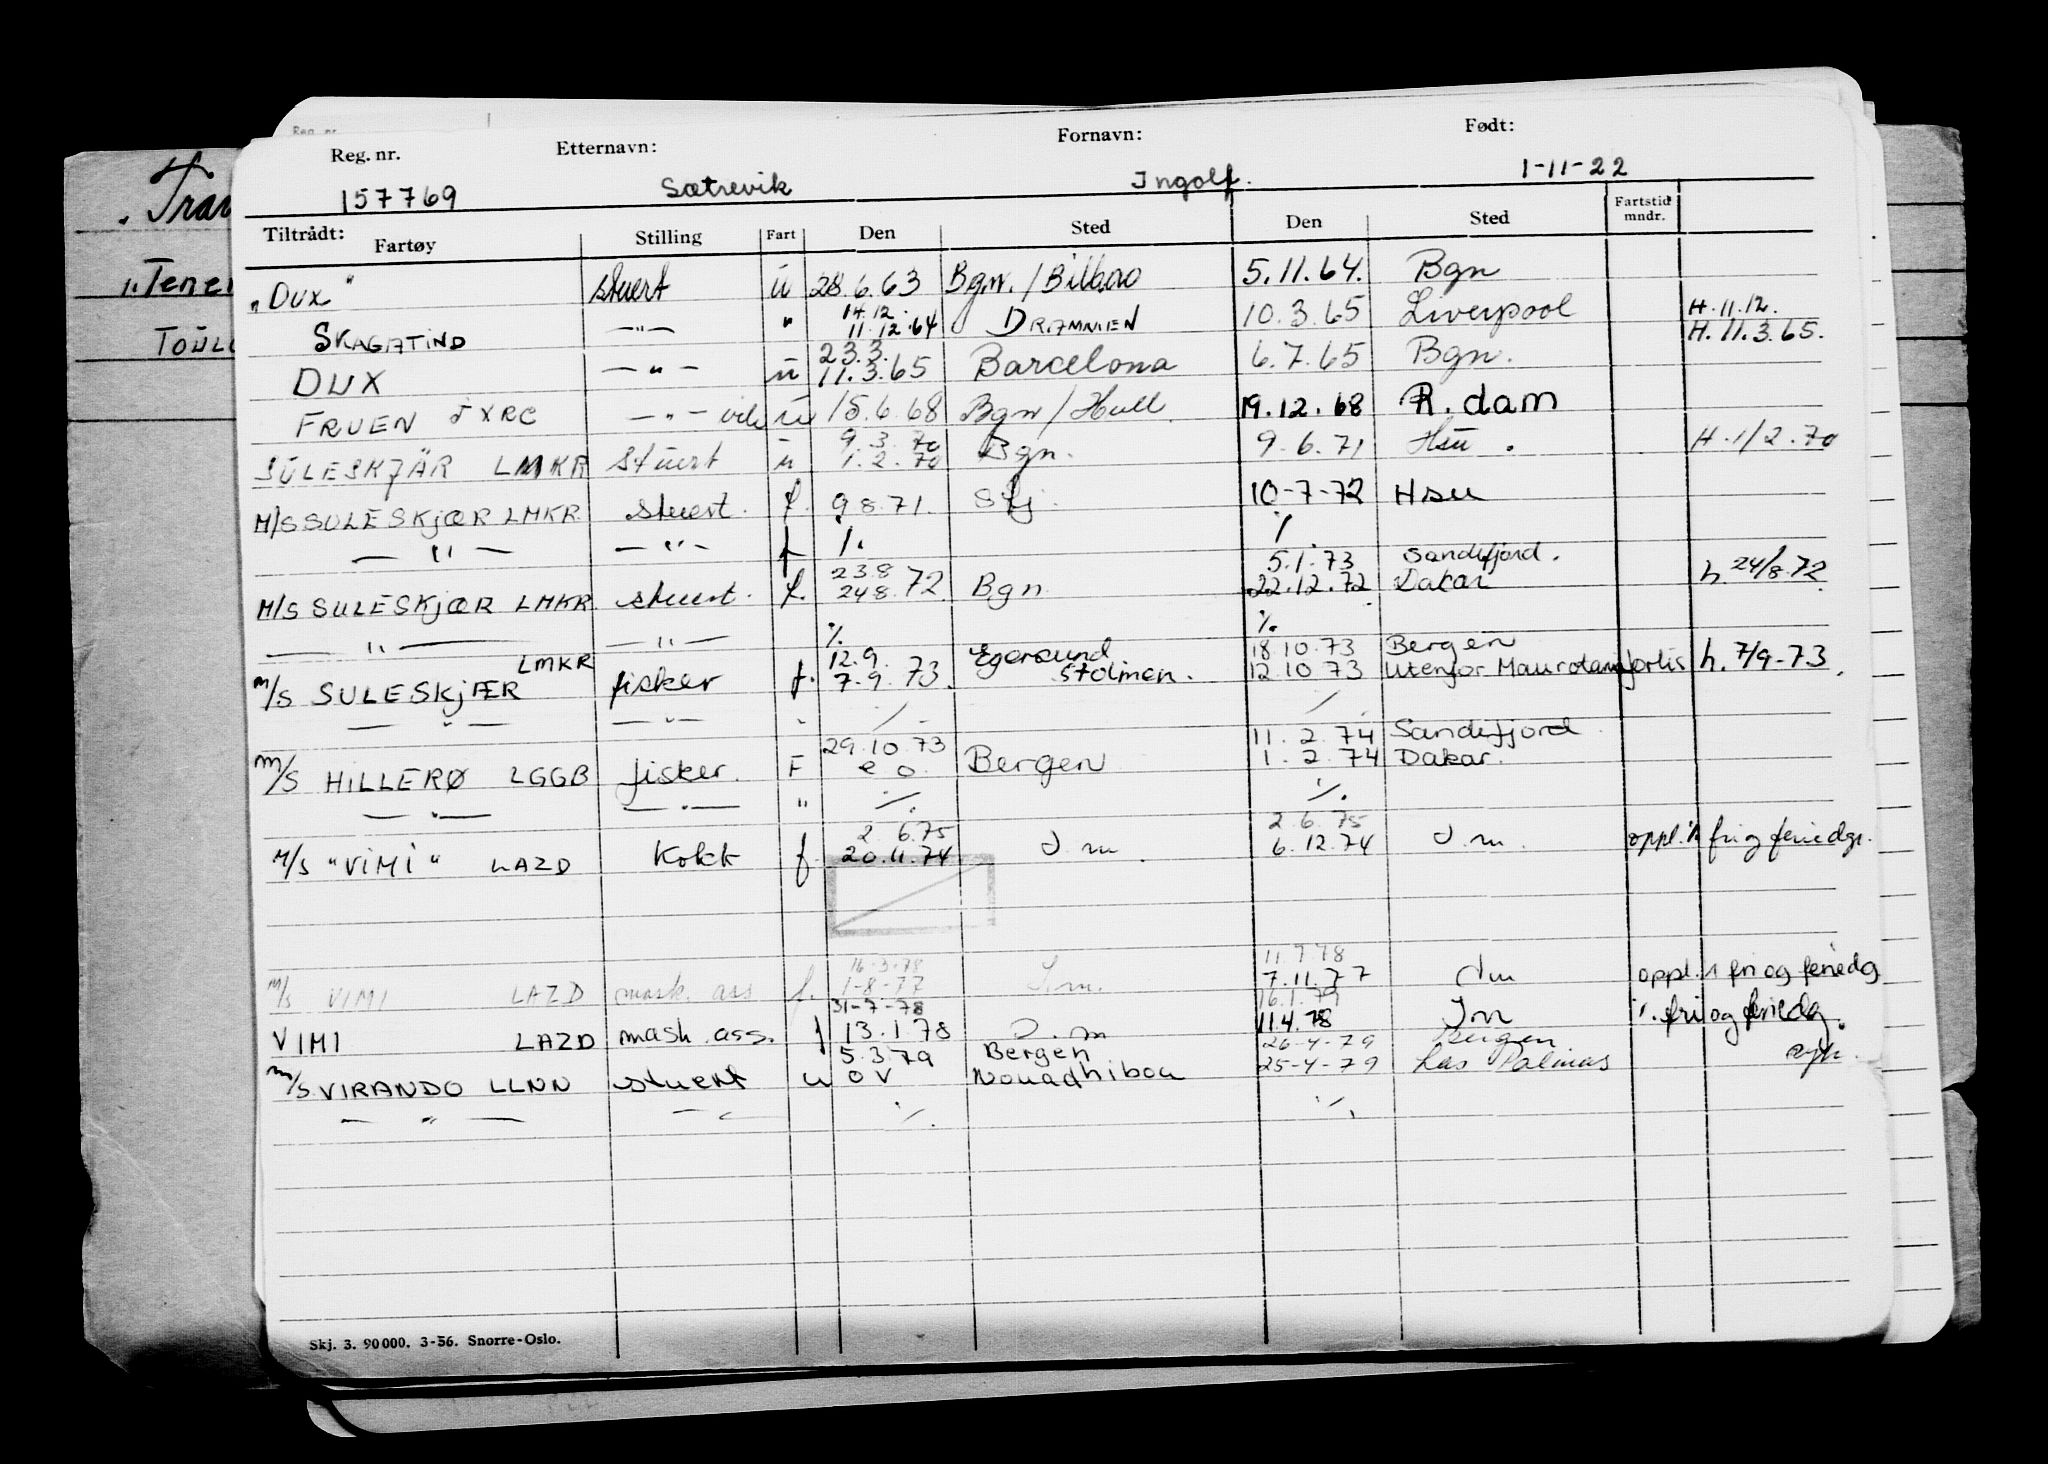 Reg. nr. Etternavn: Fornavn: Født:
157769 Sætrevik Ingolf. 1-11-22
Tiltrådt: Fartøy Stilling Fart Den Sted Den Sted Fartstid mndr.
"Dux" stuert u 28.6.63 Bgn. / Bilbao 5.11.64. Bgn
14.12. H.11.12.
SKAGATIND —"— " 11.12.64 DRAMMEN 10.3.65 Liverpool H.11.3.65.
23.3.
DUX —"— u 11.3.65 Barcelona 6.7.65 Bgn.
FRUEN JXRC —"— vik u 15.6.68 Bgn / Hull. 19.12.68 R.dam
9.3.70
SULESKJÄR LMKR stuert u 1.2.70 Bgn. 9.6.71 Hsu. H.1/2.70
M/S SULESKJÆR LMKR. stuert. f. 9.8.71. Skj. 10-7-72 Hsu
— " — —"— f ./. ./.
23.8 5.1.73 Sandefjord.
M/S SULESKJÆR LMKR stuert. f. 24.8.72 Bgn 22.12.72 Dakar h. 24/8.72
— " — — " — ./. ./.
LMKR 12.9. Egersund 18.10.73 Bergen
M/S SULESKJÆR fisker f. 7.9.73. Stolmen. 12.10.73 Utenfor h. 7/9-73.
— " — —"— " ./. ./.
29.10.73 11.2.74 Sandefjord.
M/S HILLERØ LGGB fisker. F e o. Bergen 1.2.74 Dakar.
— " — — " — " ./. ./.
2.6.75 2.6.75
M/S "VIMI" LAZD Kokk f. 20.11.74 J.m. 6.12.74 J.m. oppl. fri og feriedgr.
16-3-78 11.7.78
M/S VIMI LAZD mask. ass f. 1-8-77 J.m. 7.11.77 Jm oppl. fri og feriedg
31-7-78 16.1.79
VIMI LAZD mask. ass. f 13.1.78 J.m 11.4.78 Jm fri og feriedg.
5.3.79 Bergen 26-4-79 Bergen
M/S VIRANDO LLNN stuert u OV Nouadhibou 25-4-79 Las Palmas
— " — — " ./. ./.
Skj. 3. 90000. 3-56. Snorre-Oslo.